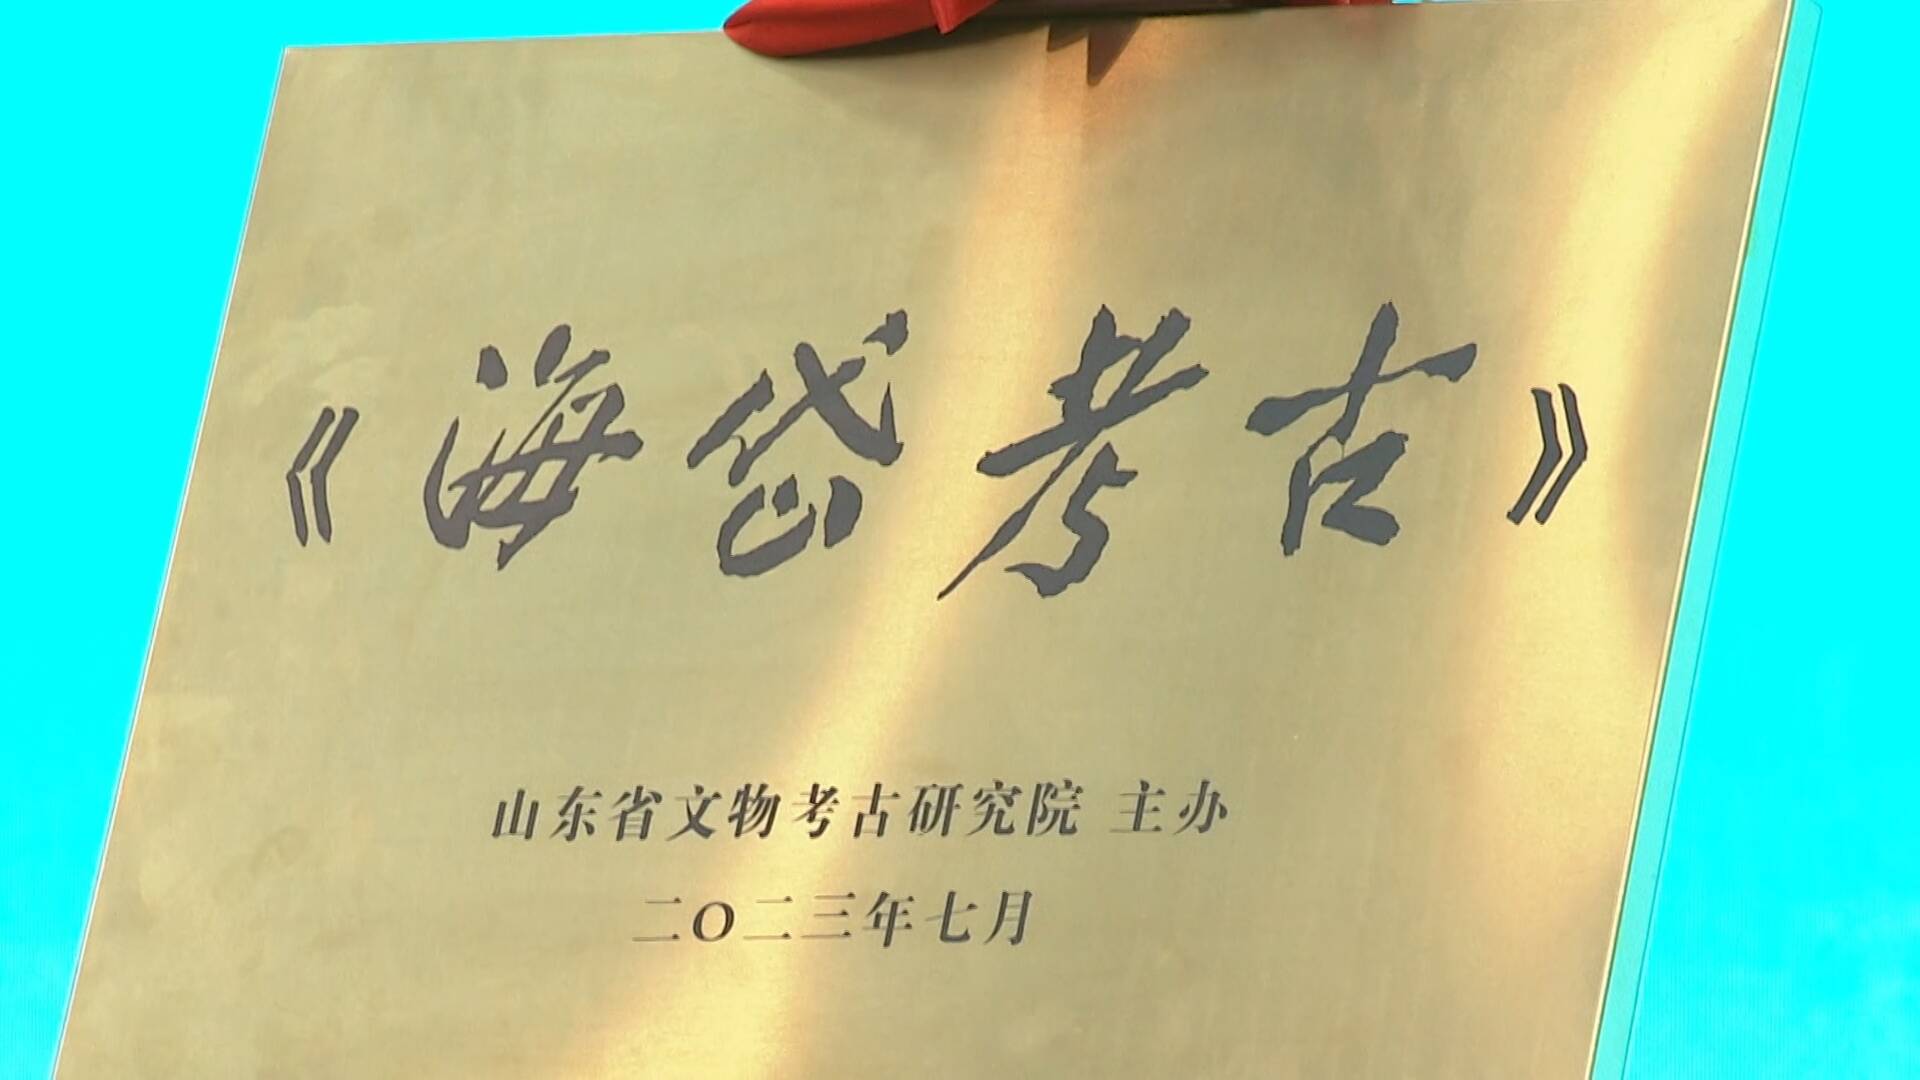 《海岱考古》
山东省文物考古研究院 主办
二〇二三年七月